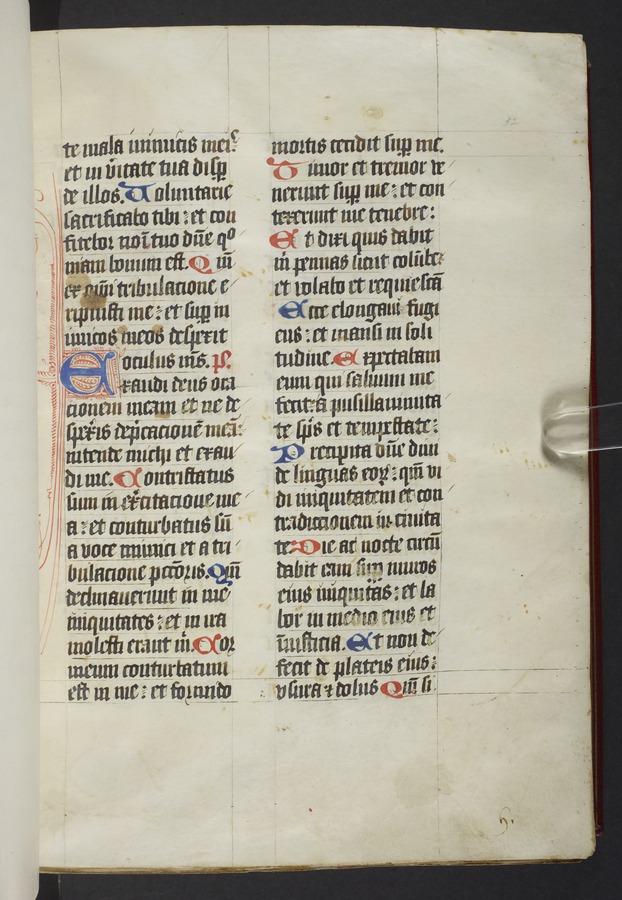 te mala inimicis meis
et in v̄itate tua disp̱
de illos. Voluntarie
sacrificabo tibi : et con
fitebor noī tuo dn̄e qº
niam bonum est. Qm̄
ex om̄i tribulacione e
ripuisti me : et sup̱ in
imicos meos despexit
oculus m̄s. p̄s.
Exaudi deus ora
cionem meam et ne de
spex̄is dep̱cacionē meā:
intende michi et exau
di me. Contristatus
sum in ex̄citacione me
a : et conturbatus sū
a voce inimici et a tri
bulacione pcc̄oris. Qm̄
declinaverunt in me
iniquitates : et in ira
molesti erant m̄. Cor
meum conturbatum
est in me : et formido
mortis cecidit sup̱ me.
Timor et tremor ve
nerunt sup̱ me : et con
texerunt me tenebre :
Et dixi quis dabit
m̄ pennas sicut colūbe
et volabo et requiescā
Ecce elongavi fugi
ens : et mansi in soli
tudine. Expectabam
eum qui salvum me
fecit : a pusillanimita
te sp̄s et tempestate :
Precipita dn̄e divi
de linguas eoꝝ : qm̄ vi
di iniquitatem et con
tradiccionem in civita
te : Die ac nocte circū
dabit eam sup̱ muros
eius iniquitas : et la
bor in medio eius et
īiusticia. Et non de
fecit de plateis eius :
vsura ⁊ dolus Qm̄ si